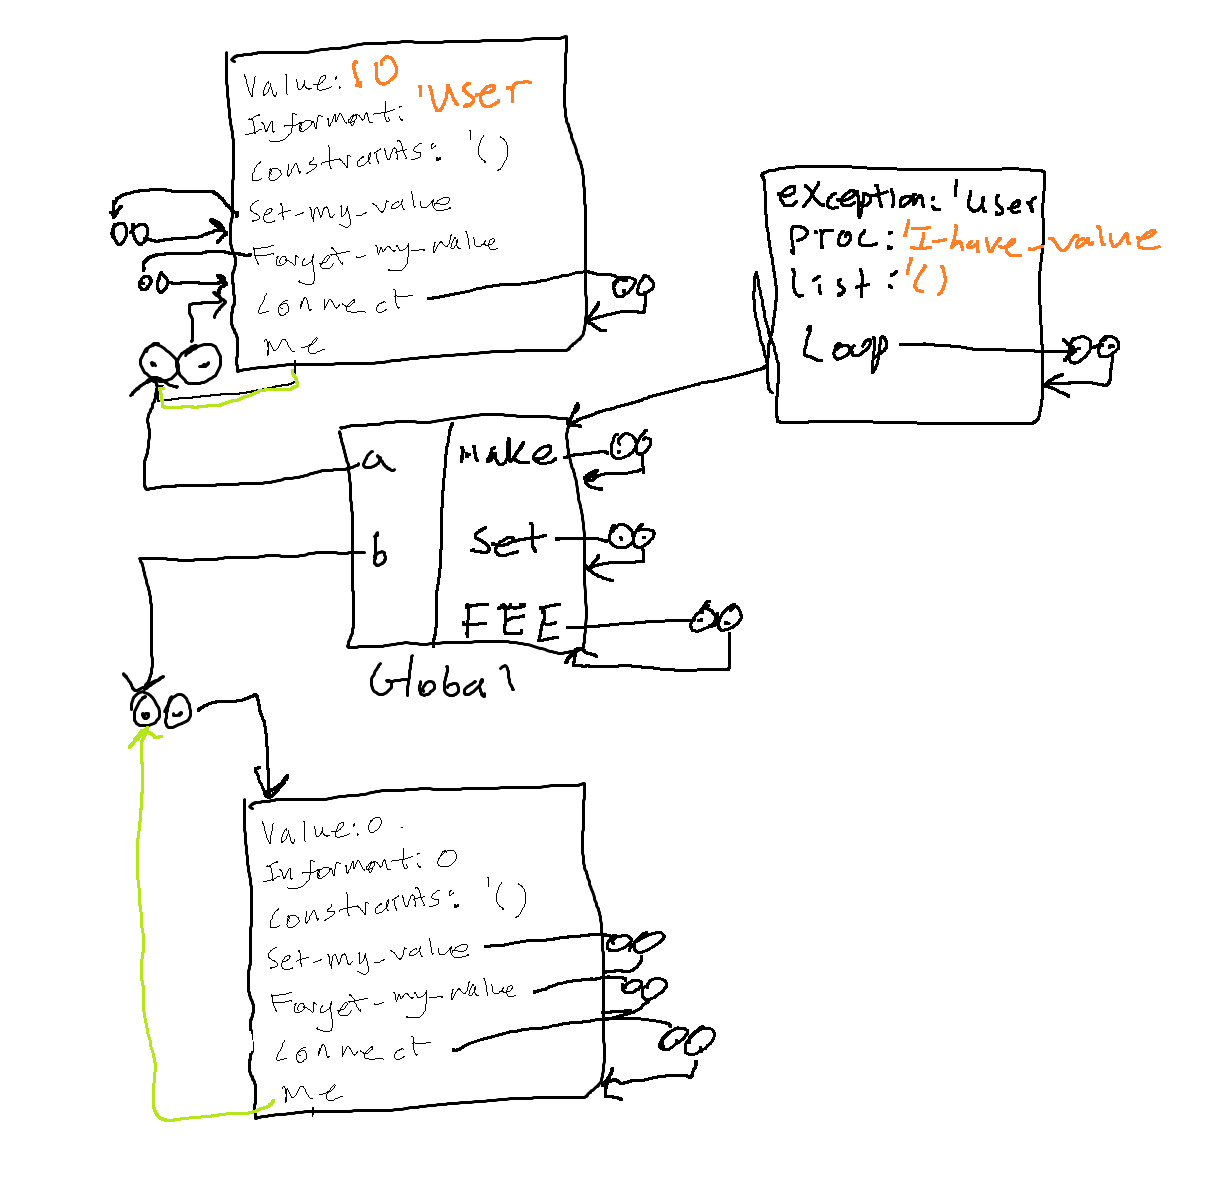 Value: 10
Informant: 'user
Constraints: '()
Set-my-value
Forget-my-value
Connect
Me
exception: 'user
proc: 'I-have-value
list: '()
Loop
a
Make
b
Set
FEE
Global
Value: 0
Informant: 0
Constraints: '()
Set-my-value
Forget-my-value
Connect
Me